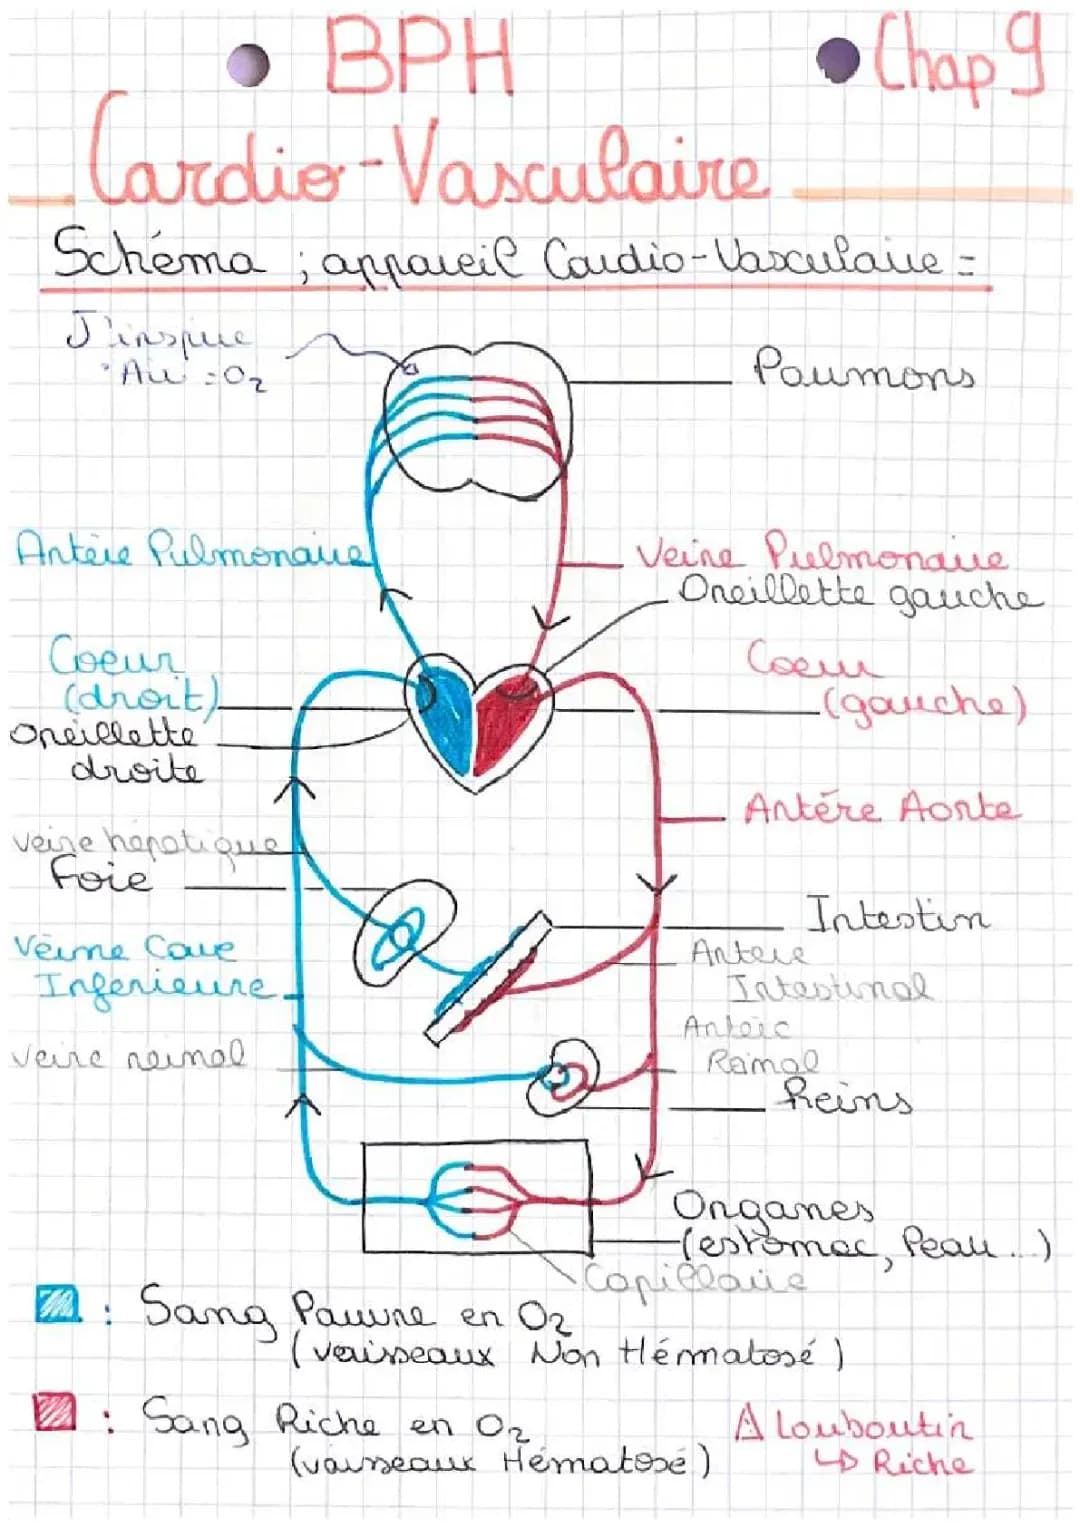 BPH
Chap 9
Cardio-Vasculaire
Schéma ; appareil Cardio-Vasculaire =
J'inspire
Air = O2
Poumons
Artère Pulmonaire
Veine Pulmonaire
Oreillette gauche
Coeur
(droit)
Oreillette
droite
Coeur
(gauche)
Artère Aorte
Veine hépatique
Foie
Intestin
Veine Cave
Inférieure
Artère
Intestinal
Veine reinal
Artère
Rainal
Reins
Organes
(estomac, Peau...)
Capillaire
: Sang Pauvre en O2
(vaisseaux Non Hématosé)
: Sang Riche en O2
(vaisseaux Hématosé)
Louboutin
↳ Riche